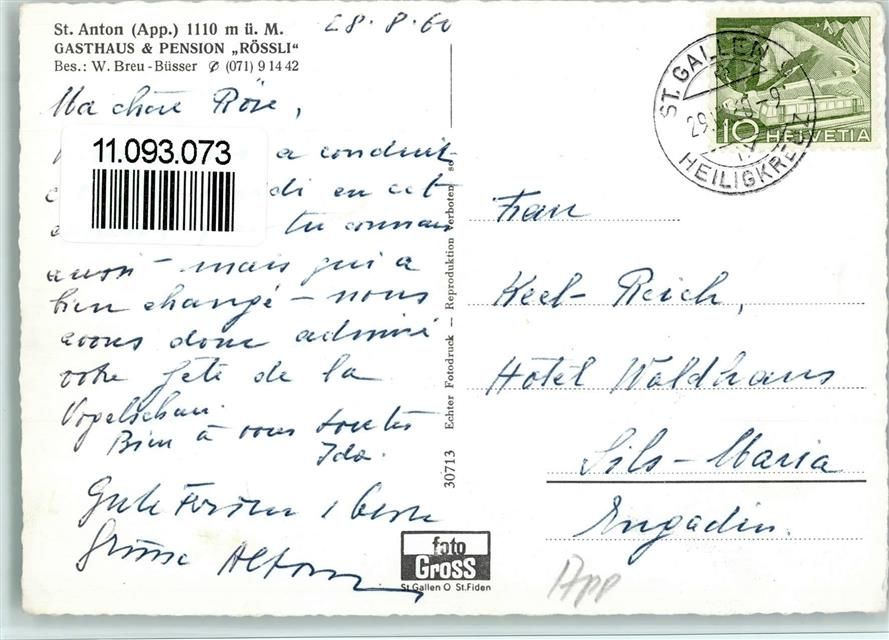 St. Anton (App.) 1110 m ü. M.
GASTHAUS & PENSION „RÖSSLI“
Bes.: W. Breu-Büsser ✆ (071) 9 14 42
28.8.60
Ma chère Röse,
11.093.073
a conduit
di en cet
tu connais
aussi – mais qui a
bien changé – nous
avons donc admiré
votre fête de la
Vogelschau.
Bien à vous toutes
Ida.
Gute Ferien & beste
Grüsse
30713 Echter Fotodruck — Reproduktion verboten
foto
GROSS
St.Gallen O St.Fiden
ST. GALLEN
HEILIGKREUZ
10 HELVETIA
Frau
Keel-Reich,
Hôtel Waldhaus
Sils-Maria
Engadin.
App